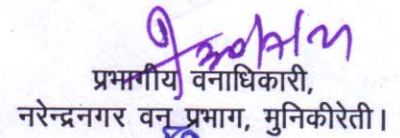 प्रभागीय वनाधिकारी,
नरेन्द्रनगर वन प्रभाग, मुनिकीरेती।